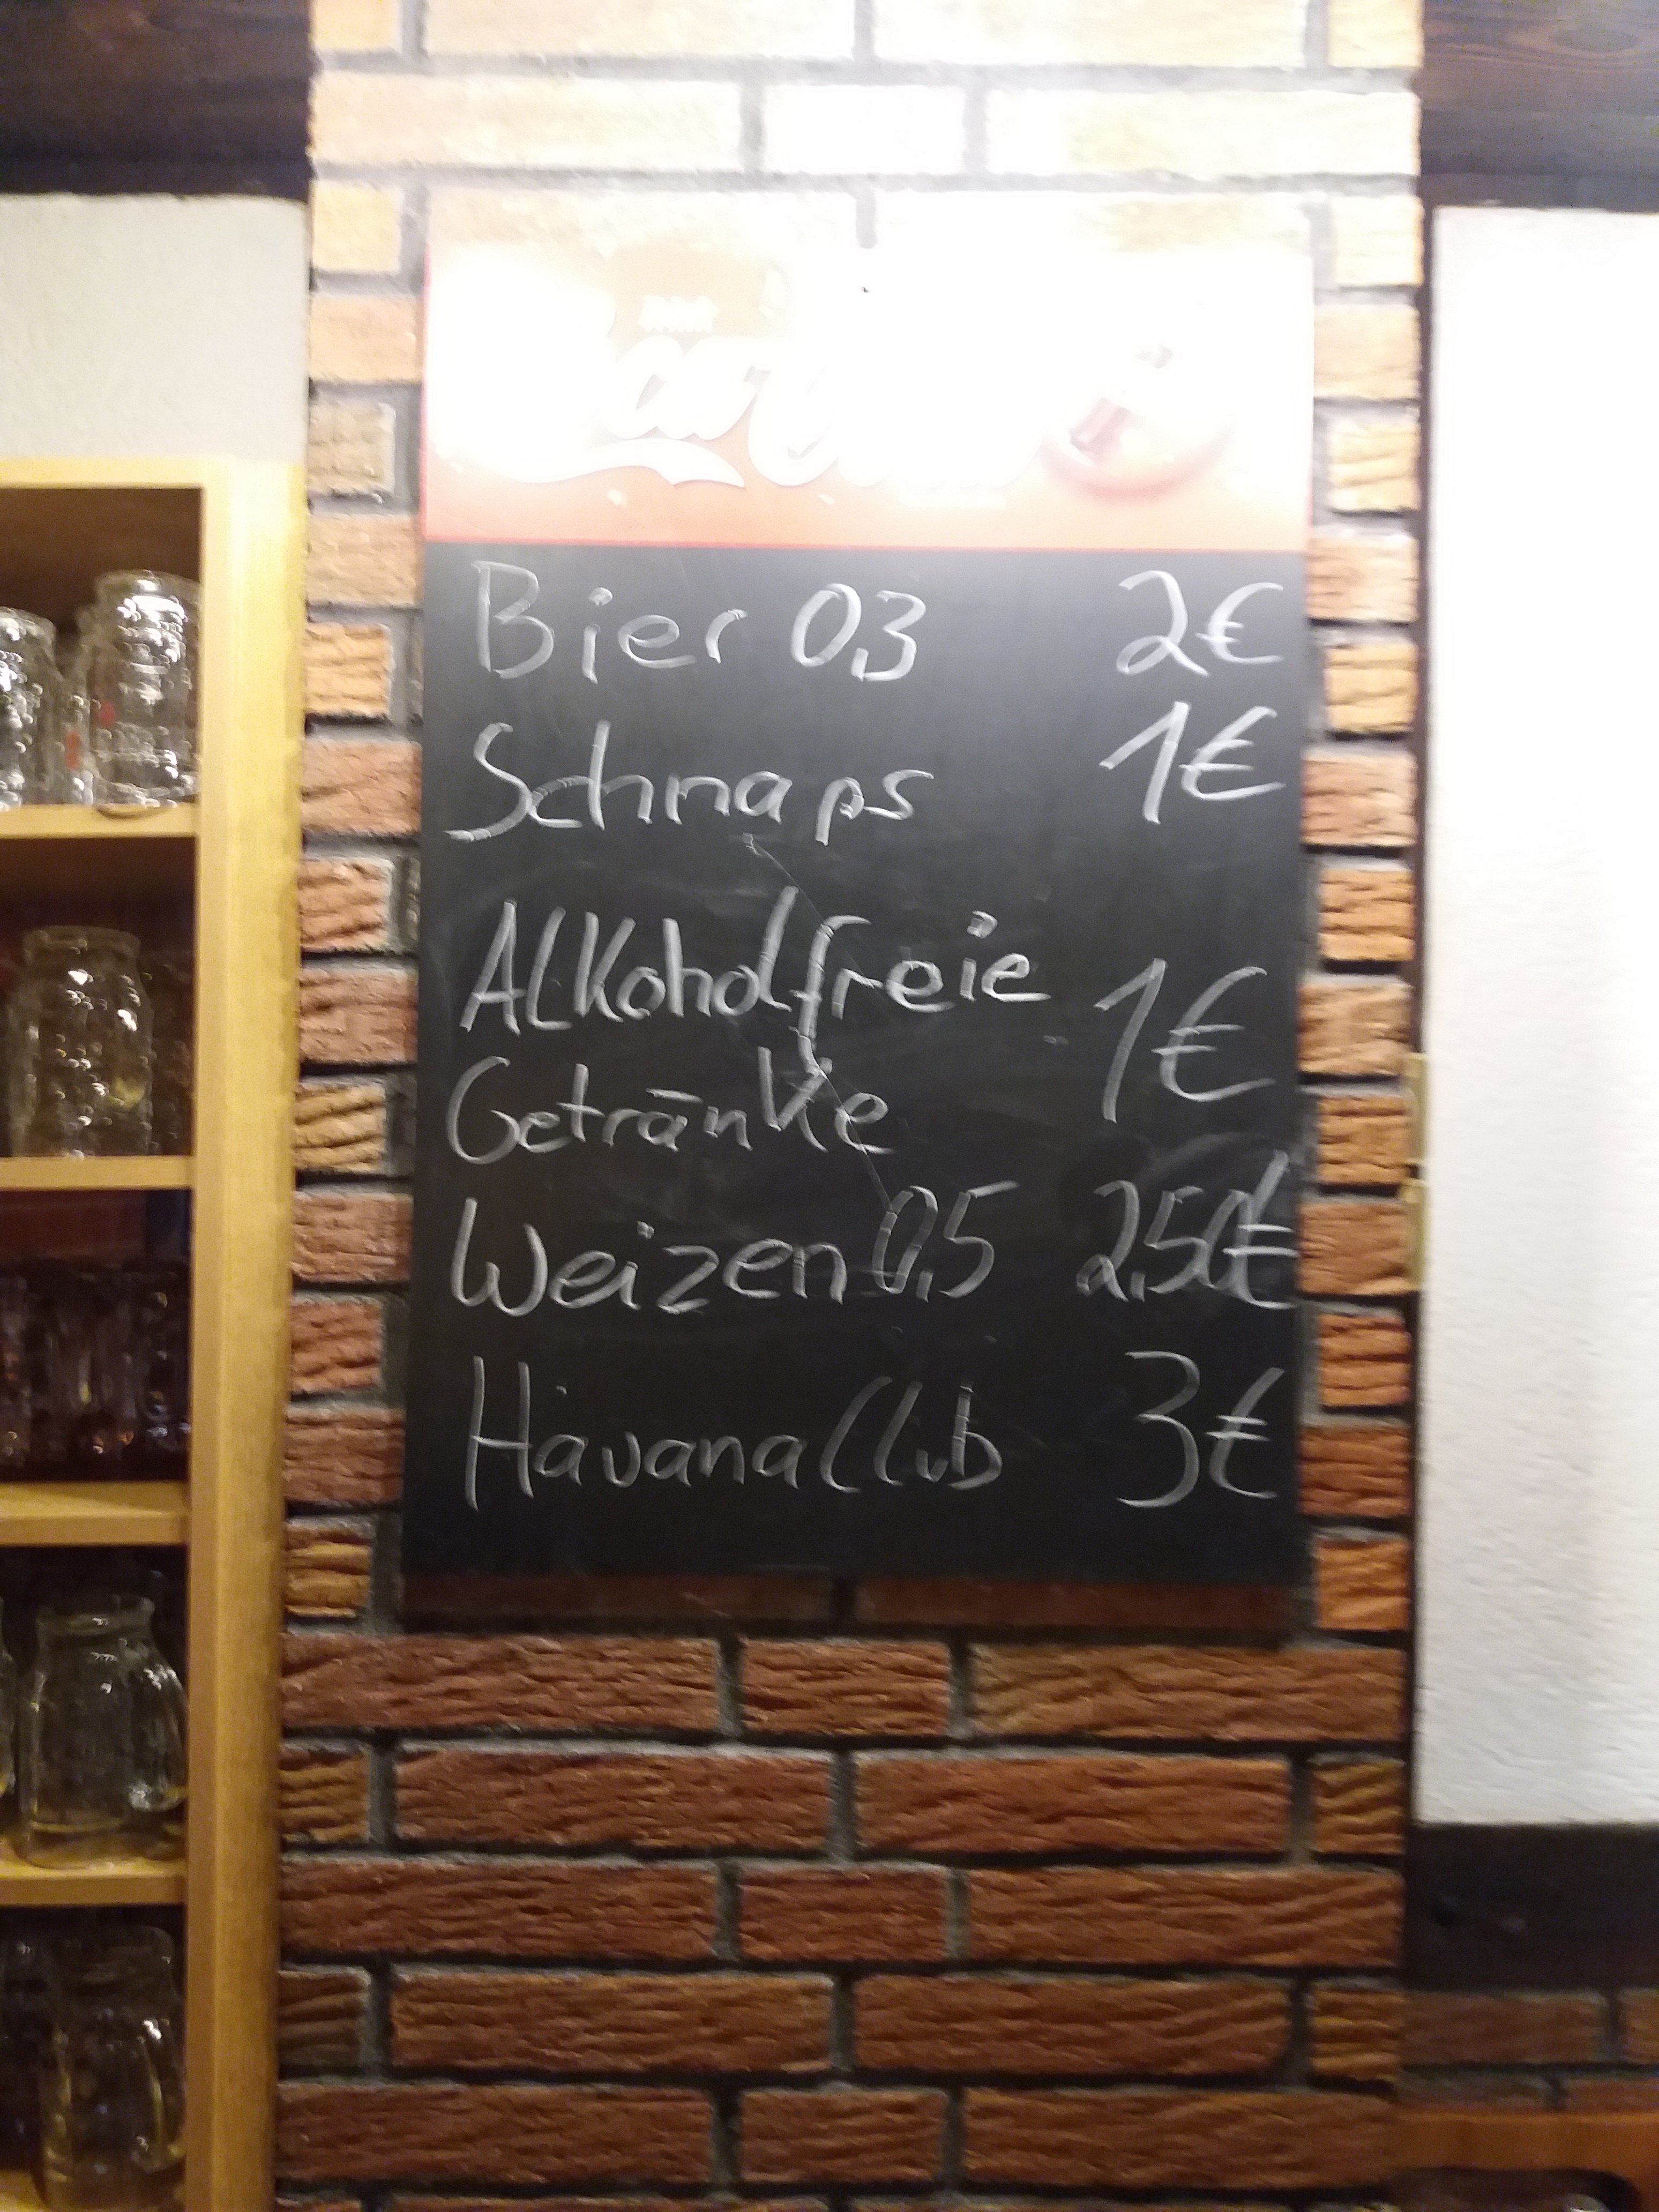 Bier 0,3 2€
Schnaps 1€
Alkoholfreie
Getränke 1€
Weizen 0,5 2,50€
Havana Club 3€